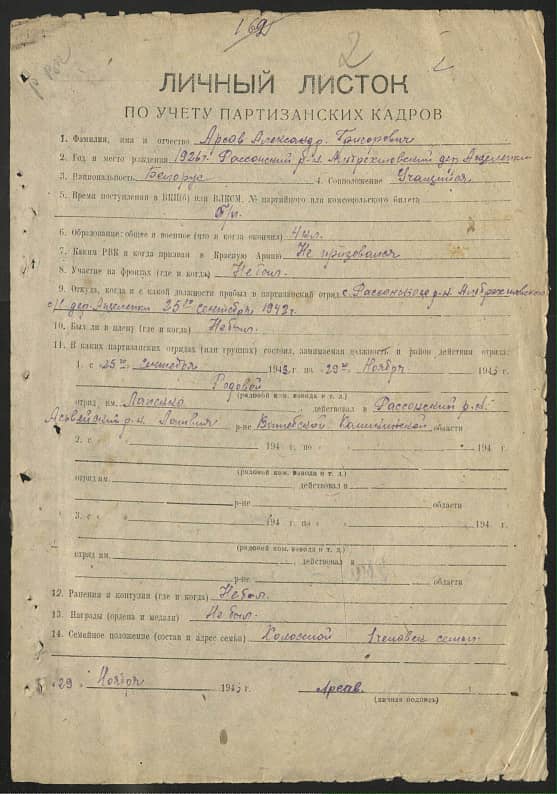 162
2
ЛИЧНЫЙ ЛИСТОК
ПО УЧЕТУ ПАРТИЗАНСКИХ КАДРОВ
1. Фамилия, имя и отчество Арсав Александр Григорович
2. Год и место рождения 1926 г. Рассонский р-н
3. Национальность Белорус 4. Соцположение Учащийся
5. Время поступления в ВКП(б) или ВЛКСМ, № партийного или комсомольского билета
б/п.
6. Образование: общее и военное (что и когда окончил) 4 кл.
7. Каким РВК и когда призван в Красную Армию Не призовался
8. Участие на фронтах (где и когда) Небыл.
9. Откуда, когда и с какой должности прибыл в партизанский отряд с
с/с дер. 25го сентября 1942г.
10. Был ли в плену (где и когда) Небыл.
11. В каких партизанских отрядах (или группах) состоял, занимаемая должность и район действия отряда:
1. с „ 25 го сентября 1942 г. по „ 29 го Ноября 1943 г.
Родовой
(рядовой ком. взвода и т. д.)
отряд им. действовал в Рассонский р.н.
р-н. Латвия р-не Витебской Калининской области
2. с „ „ 194 г. по „ „ 194 г.
(рядовой ком. взвода и т. д.)
отряд им. действовал в
р-не области
3. с „ „ 194 г. по „ „ 194 г.
(рядовой ком. взвода и т. д.)
отряд им. действовал в
р-не области
12. Ранения и контузии (где и когда) Небыл.
13. Награды (ордена и медали) Небыл.
14. Семейное положение (состав и адрес семьи) Холостой 1 человек семьи.
29 Ноября 1943 г. Арсав.
(личная подпись)